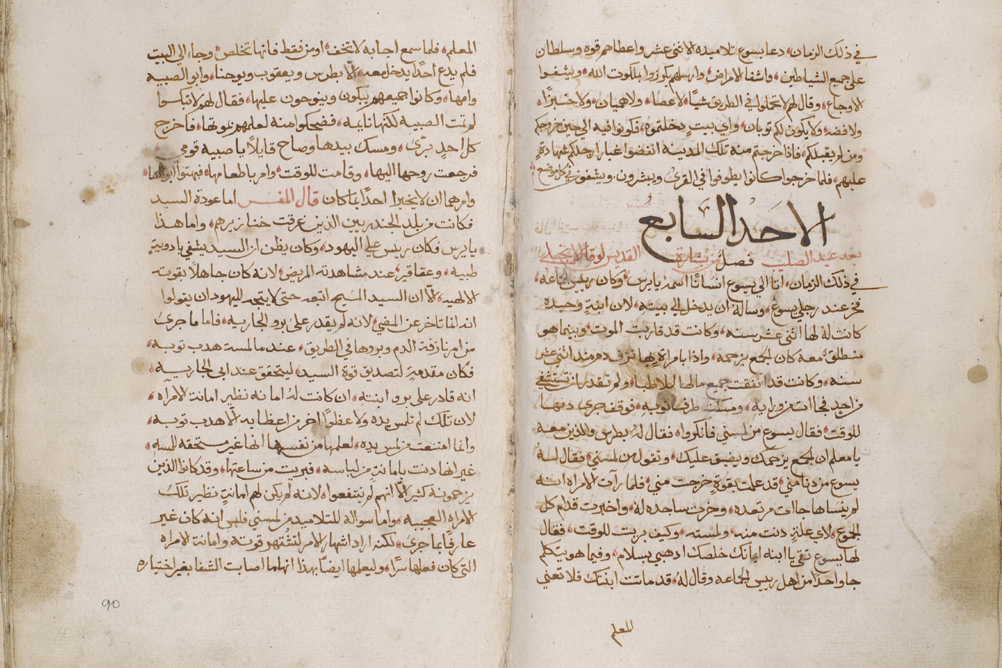 في ذلك الزمان، دعا يسوع تلاميذه الاثني عشر واعطاهم قوة وسلطان
على جميع الشياطين، واشفا الامراض، وارسلهم يكرزوا بملكوت الله، ويشفوا
الاوجاع، وقال لهم لا تحملوا في الطريق شيًا، لا عصا، ولا هميان، ولا خبزًا،
ولا فضه، ولا يكون لكم ثوبان، واي بيت دخلتموه، فكونوا فيه الى حين خروجكم
ومن لم يقبلكم، فاذا خرجتم من تلك المدينة انفضوا غبار ارجلكم شهادة
عليهم، فلما خرجوا كانوا يطوفوا في القرى ويبشرون، ويشفون في كل موضع
الاحد السابع
بعد عيد الصليب فصل من بشارة القديس لوقا الانجيلي
في ذلك الزمان، اتا الى يسوع انسانًا اسمه يايرس، وكان ريس الجماعه،
فخر عند رجلي يسوع، وساله ان يدخل الى بيته، لان ابنةٍ وحيدة
كانت له لها اثنى عشر سنه، وكانت قد قاربت الموت، وبينما هو
منطلق معه كان الجمع يزحمه، واذا بامراة بها نزف دم منذ اثنى عشر
سنه، وكانت قد انفقت جميع مالها للاطبا، ولم تقدر ان تستشفي
من احد فجاات من ورايه، ومسكت طرف ثوبه، فوقف جري دمها،
للوقت، فقال يسوع من لمسني فانكروا، فقال له بطرس والذين معه
يا معلم ان الجمع يزحمك ويضيق عليك، وتقول من لمسني، فقال لهم
يسوع من دنا مني، قد علمت بقوةٍ خرجت مني، فلما رات الامراه انه
لم ينساها جاات مرتعده، وخرت ساجده له، واخبرت قدام كل
الجمع، لاي علةٍ دنت منه، ولمسته، وكيف بريت للوقت، فقال
لها يسوع ثقي يا ابنه ايمانك خلصك اذهبي بسلام، وفيما هو يتكلم
جا واحدًا من اهل ريس الجماعه وقال له، قد ماتت ابنتك فلا تعني
المعلم
المعلم، فلما سمع اجابه لا تخف، اومن فقط فانها تخلص، وجا الى البيت
فلم يدع احدًا يدخل معه، الا بطرس ويعقوب ويوحنا، وابو الصبيه
وامها، وكانوا جميعهم يبكون وينوحون عليها، فقال لهم لا تبكوا
لم تمت الصبيه لكنها نايمه، فضحكوا منه لعلمهم بموتها، فاخرج
كل احدٍ برّى، ومسك بيدها وصاح قايلًا يا صبيه قومي،
فرجعت روحها اليها، وقامت للوقت، وامر باطعامها، فبهتوا ابواها
وامرهما ان لا يخبرا احدًا بما كان قال المفسر اما عودة السيد
فكانت من بلد الجندريين الذين غرقت خنازيرهم، واما هذا
يايرس فكان ريس على اليهود، وكان يظن ان السيد يشفي بادويةٍ
طبيه، وعقاقير، عند مشاهدته المريض، لانه كان جاهلًا بقوته
الالهيه، الا ان السيد المسيح اتبعه حتى لا يتجه لليهود ان يقولوا
انه انما تاخر عن المضي، لانه لم يقدر على برو الجاريه، فاما ما جرى
من امر نازفة الدم وبروها في الطريق، عندما لمست هدب ثوبه،
فكان مقدمةٍ لتصديق قوة السيد، ليتحقق عند ابي الجاريه
انه قادر على برو ابنته، ان كانت له امانه نظير امانت الامراه،
لان تلك لم تلمس يده، ولا عظوًا اخر من اعظايه الا هدب ثوبه،
وانما امتنعت من لمس يده، لعلمها من نفسها انها غير مستحقه للمسه،
غير انها دنت بامانتٍ من لباسه، فبريت من ساعتها، وقد كانوا الذين
يزحمونه كثير، الا انهم لم ينتفعوا، لانه لم يكن لهم امانتٍ نظير تلك
الامراه العجيبه، واما سواله للتلاميذ من لمسني فليس انه كان غير
عارفًا بما جرى، لكنه اراد اشهار الامر لتشتهر قوته، وامانت الامراه
التي كان فعلها سرًا، وليعلمها ايضًا بهذا انها ما اصابت الشفا بغير اختياره
90